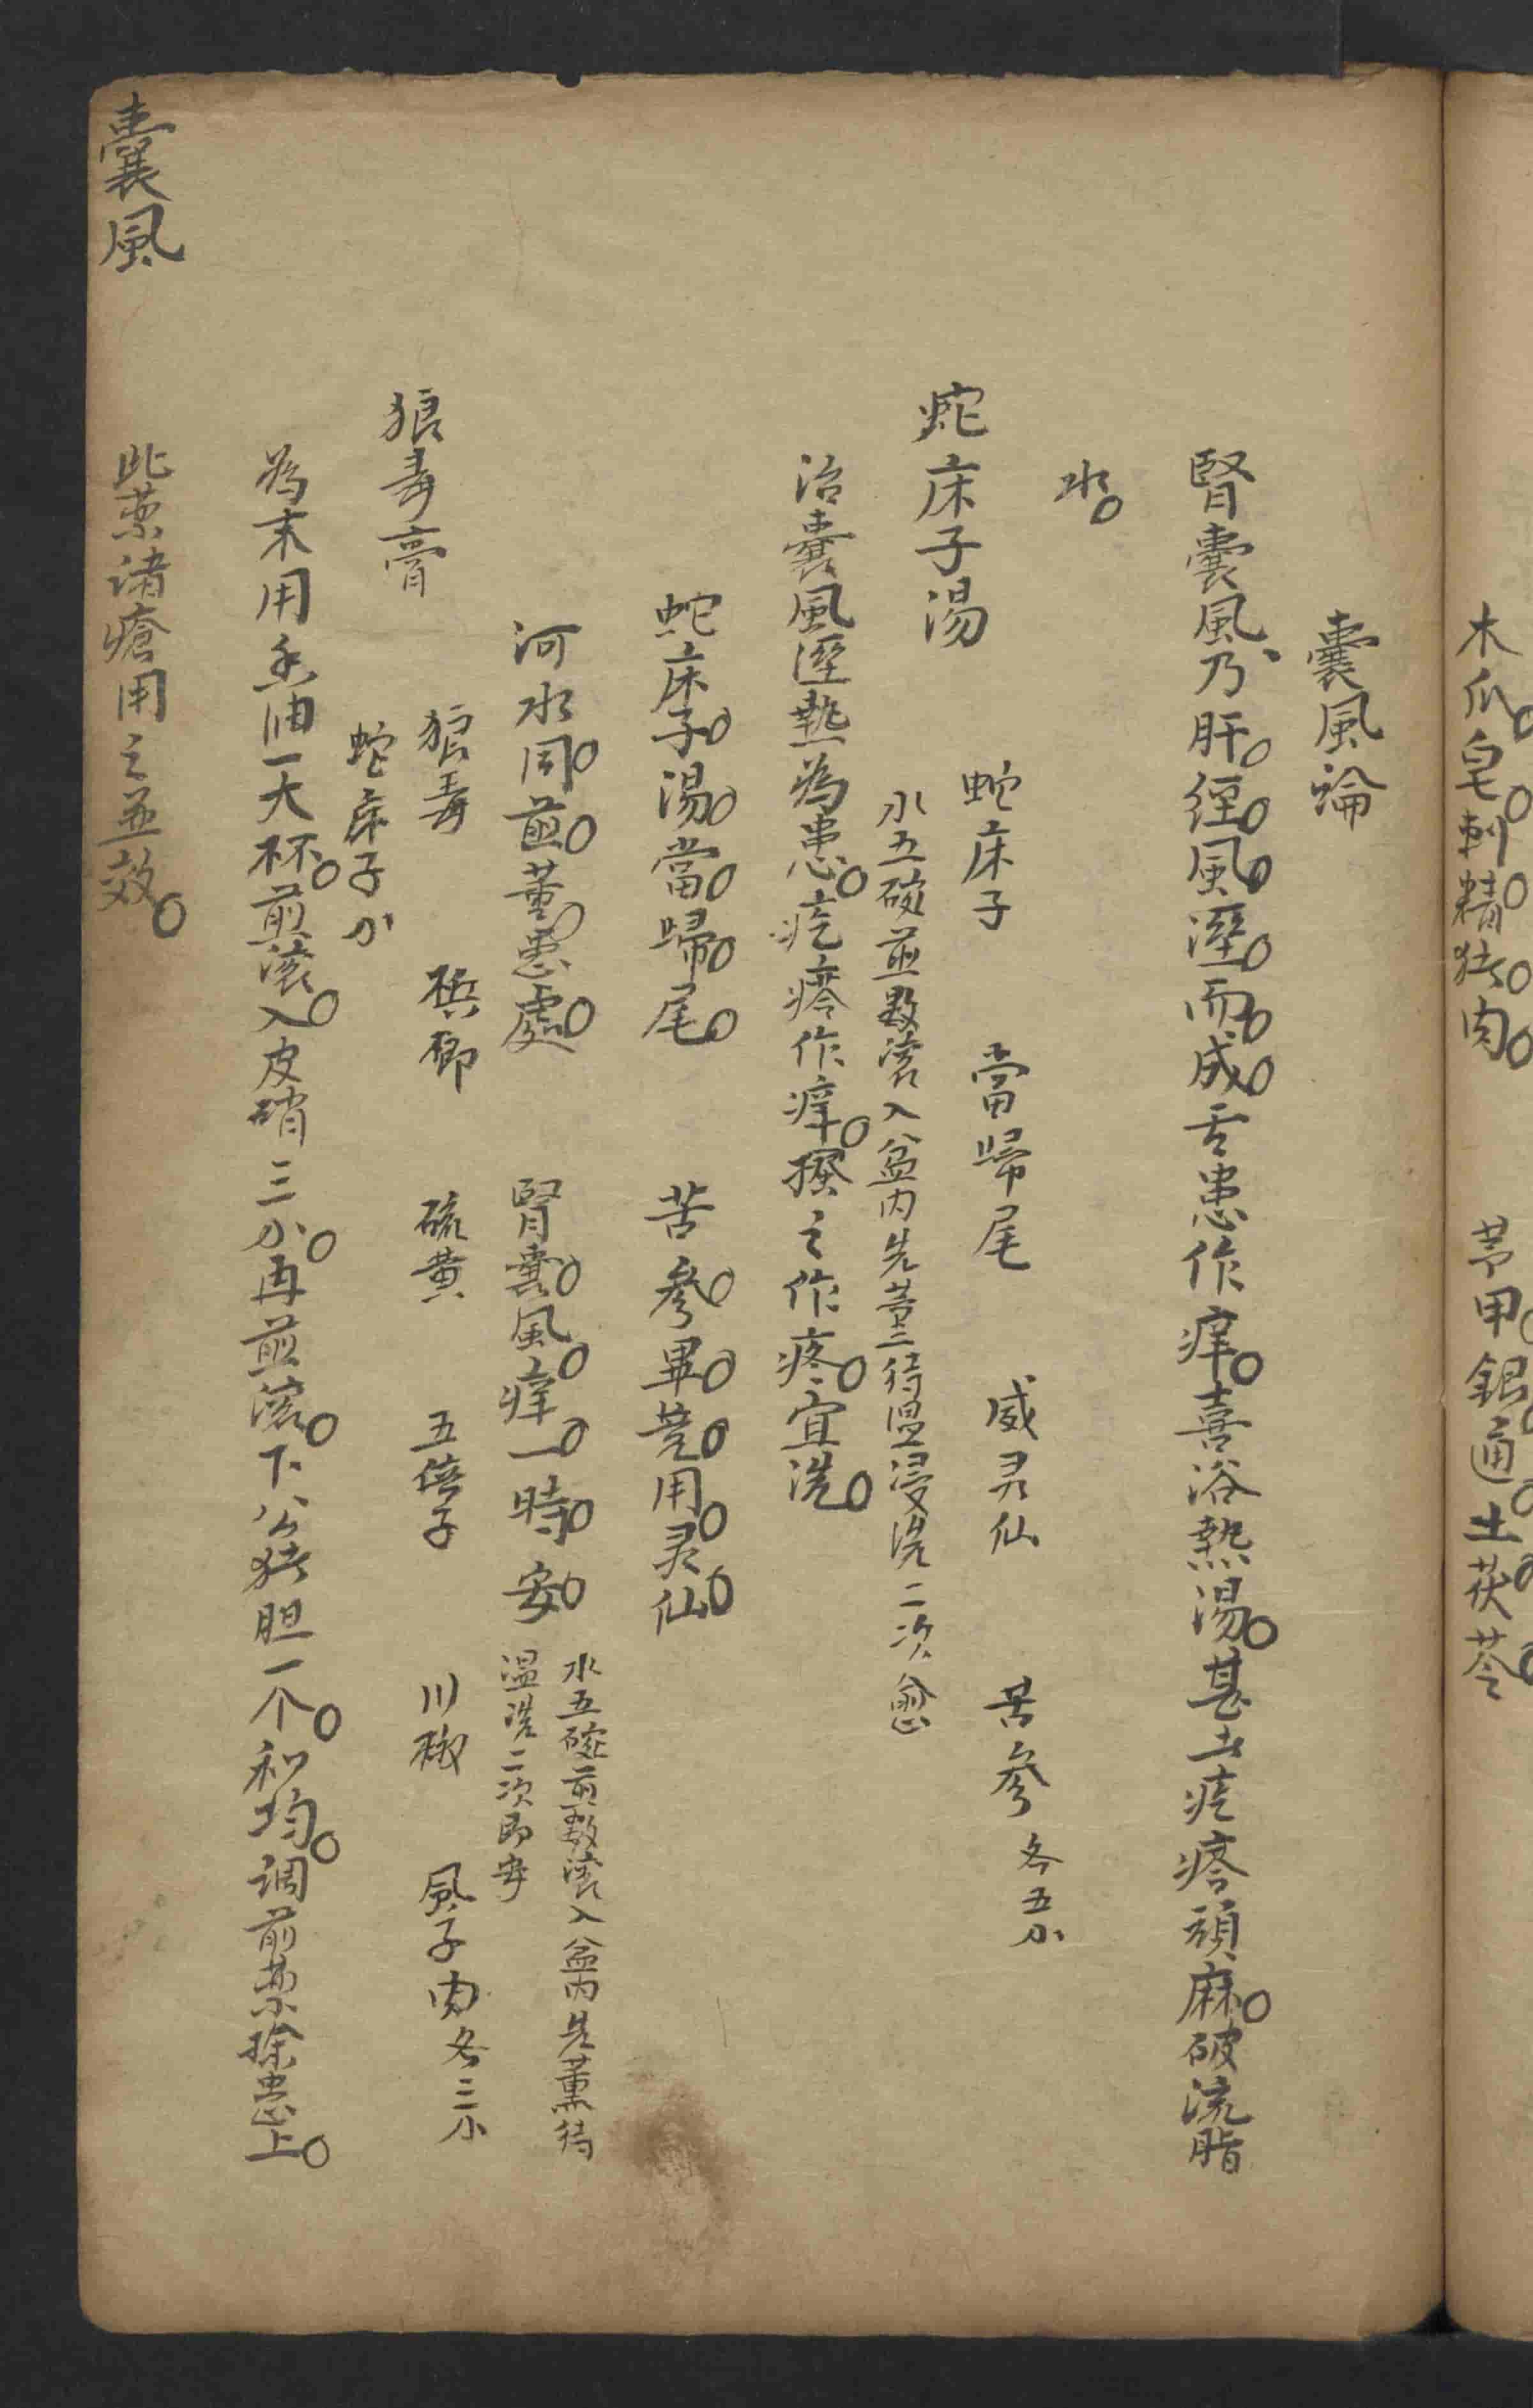 木瓜皂刺精猪肉　芎甲銀通土茯苓
囊風論
腎囊風乃肝經風溼而成舌患作痒喜浴熱湯甚者疙瘩頑麻破流脂
水
蛇床子湯
蛇床子　當歸尾　威灵仙　苦參各五小
水五碗煎数滚入盆內先薰待温浸洗二次愈
治囊風溼熱為患疙瘩作痒搔之作疼宜洗
蛇床子湯當歸尾　苦參畢竟用灵仙
河水同煎薰患處　腎囊風痒一時安
水五碗煎数滚入盆內先薰待
温洗二次即安
狼毒膏
狼毒　槟榔　硫黄　五倍子　川椒　風子肉各三小
蛇床子
為末用香油一大杯煎滚入皮硝三小再煎滚下公猪胆一个和均調前藥搽患上
此藥諸瘡用之並效
囊風